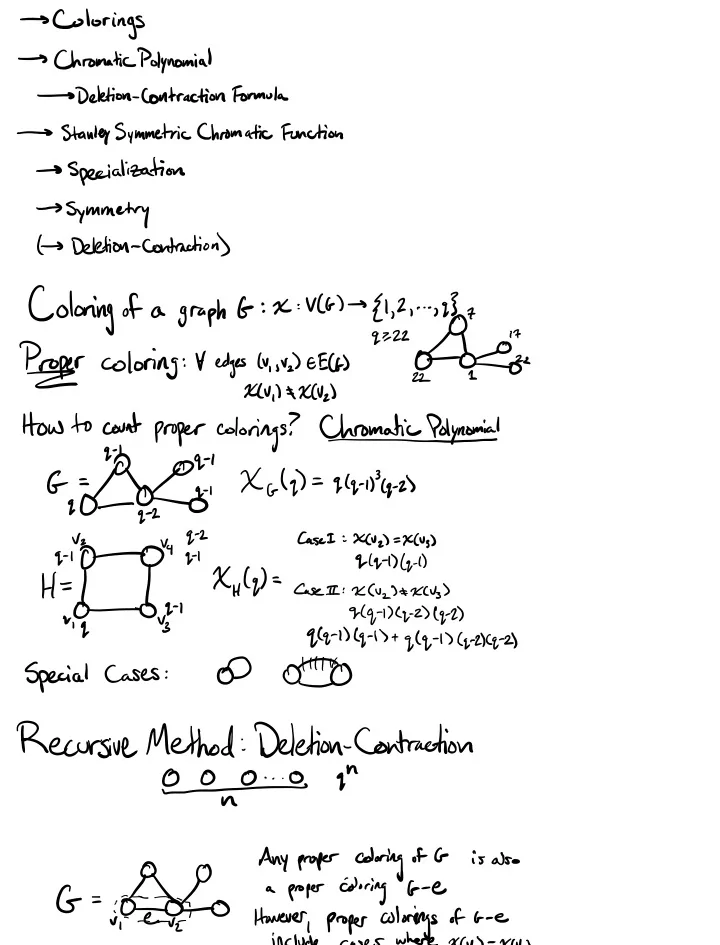 → Colorings
→ Chromatic Polynomial
→ Deletion-Contraction Formula
→ Stanley Symmetric Chromatic Function
→ Specialization
→ Symmetry
(→ Deletion-Contraction)
Coloring of a graph G : χ : V(G) → {1,2,...,q}
q≥22
7
17
22
1
22
Proper coloring: ∀ edges (v₁,v₂) ∈ E(G)
χ(v₁) ≠ χ(v₂)
How to count proper colorings? Chromatic Polynomial
G =
q-1
q-1
q
q-2
q-1
χ_G(q) = q(q-1)³(q-2)
H =
v₂
q-1
v₄
q-2
q-1
v₁
q
v₃
q-1
χ_H(q) =
Case I : χ(v₂)=χ(v₃)
q(q-1)(q-1)
Case II : χ(v₂)≠χ(v₃)
q(q-1)(q-2)(q-2)
q(q-1)(q-1)+ q(q-1)(q-2)(q-2)
Special Cases:
Recursive Method: Deletion-Contraction
n
qⁿ
G =
v₁
e
v₂
Any proper coloring of G is also
a proper coloring G-e
However, proper colorings of G-e
include cases where χ(v₁)=χ(v₂)